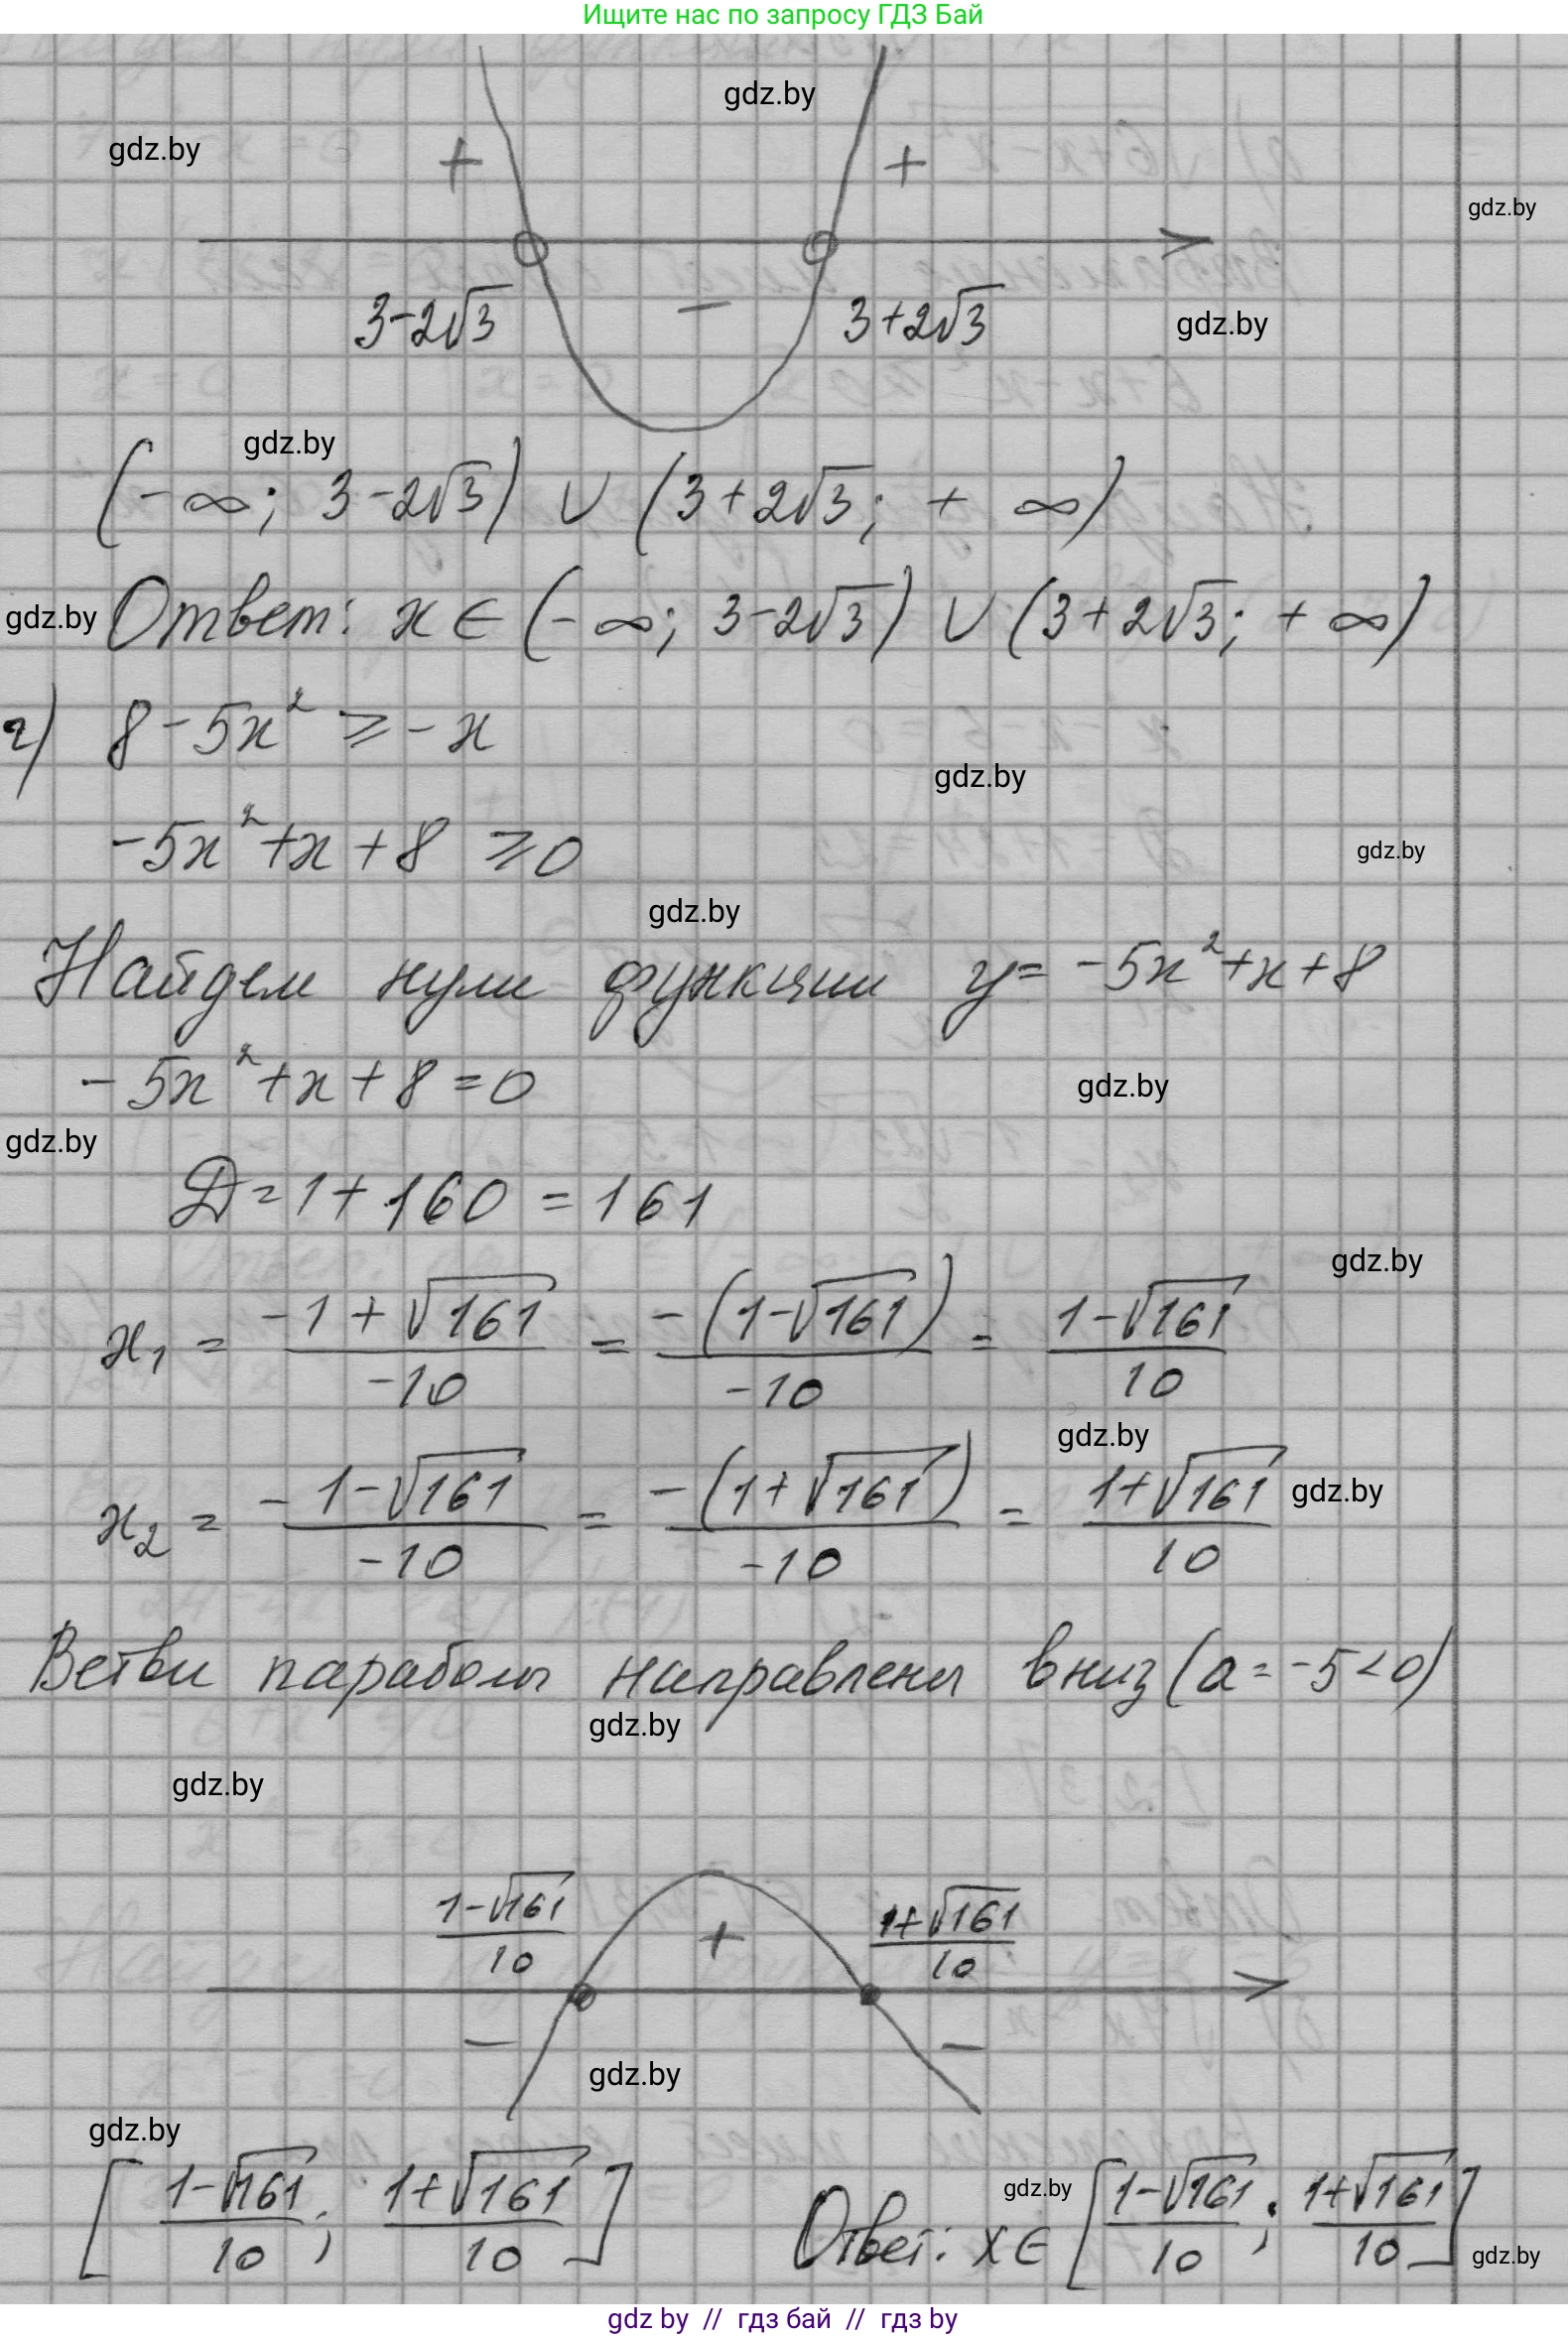 Ищите нас по запросу ГДЗ Бай
gdz.by
gdz.by
+ +
gdz.by
3-2√3 - 3+2√3
gdz.by
gdz.by
(-∞; 3-2√3) ∪ (3+2√3; +∞)
gdz.by
Ответ: x ∈ (-∞; 3-2√3) ∪ (3+2√3; +∞)
г) 8-5x² ⩾ -x
gdz.by
-5x²+x+8 ⩾ 0
gdz.by
gdz.by
Найдем нули функции y = -5x²+x+8
-5x²+x+8=0
gdz.by
gdz.by
D=1+160=161
gdz.by
x₁ = (-1+√161)/(-10) = (-(1-√161))/(-10) = (1-√161)/10
gdz.by
x₂ = (-1-√161)/(-10) = (-(1+√161))/(-10) = (1+√161)/10
gdz.by
Ветви параболы направлены вниз (a=-5<0)
gdz.by
gdz.by
(1-√161)/10 + (1+√161)/10
- -
gdz.by
gdz.by
[(1-√161)/10; (1+√161)/10]
gdz.by
Ответ: x ∈ [(1-√161)/10; (1+√161)/10]
gdz.by
gdz by // гдз бай // гдз by